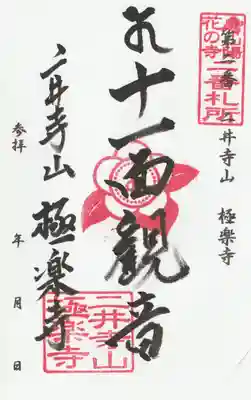 花の寺
二番札所
二井寺山 極楽寺
十一面観音
二井寺山 極楽寺
二井寺山
極楽寺
参拝 年 月 日